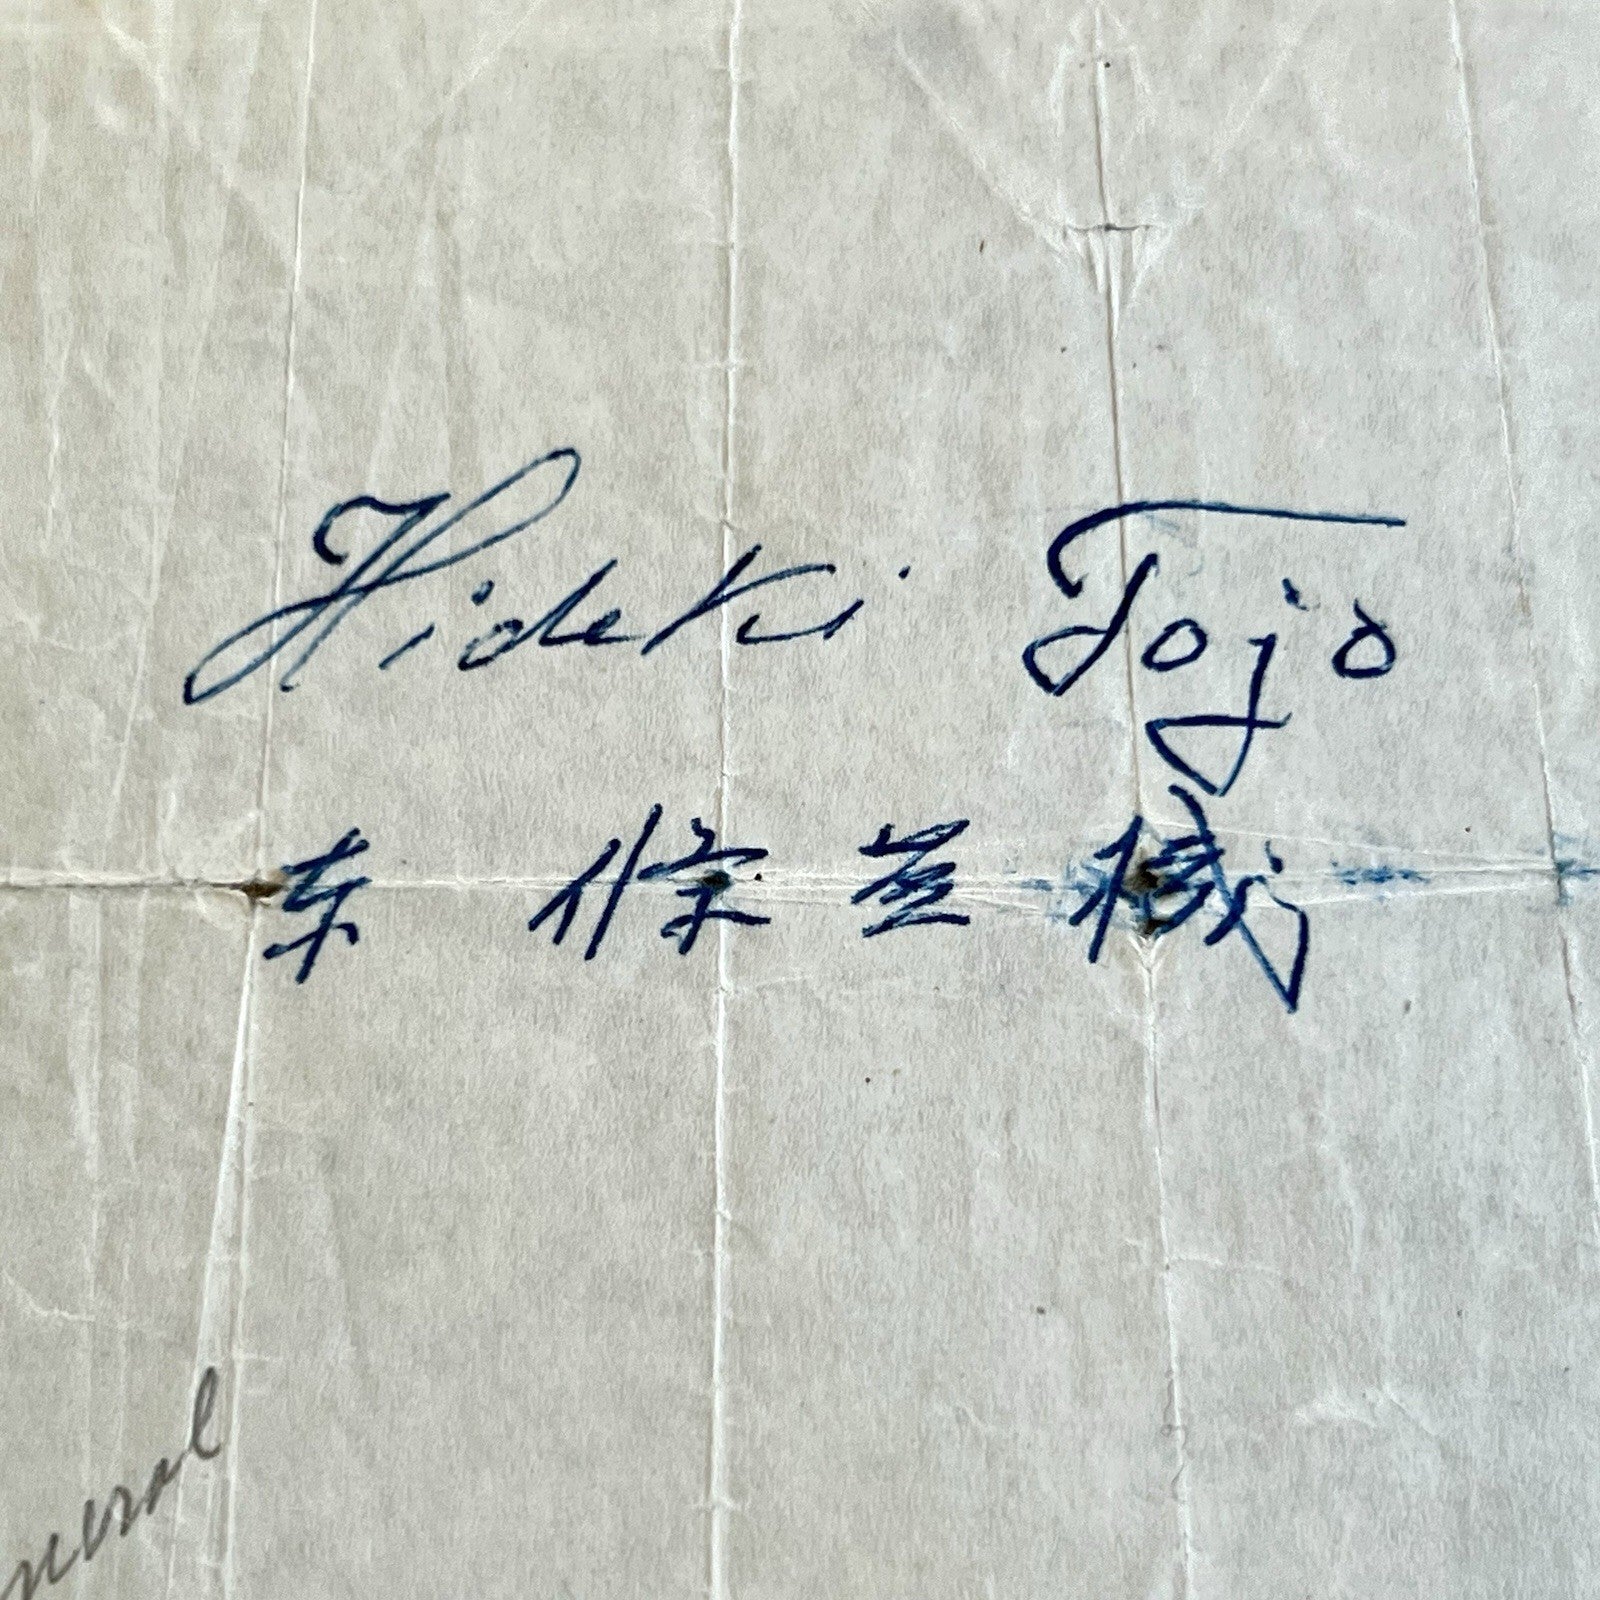 Hideki Tojo
东條英機
neral